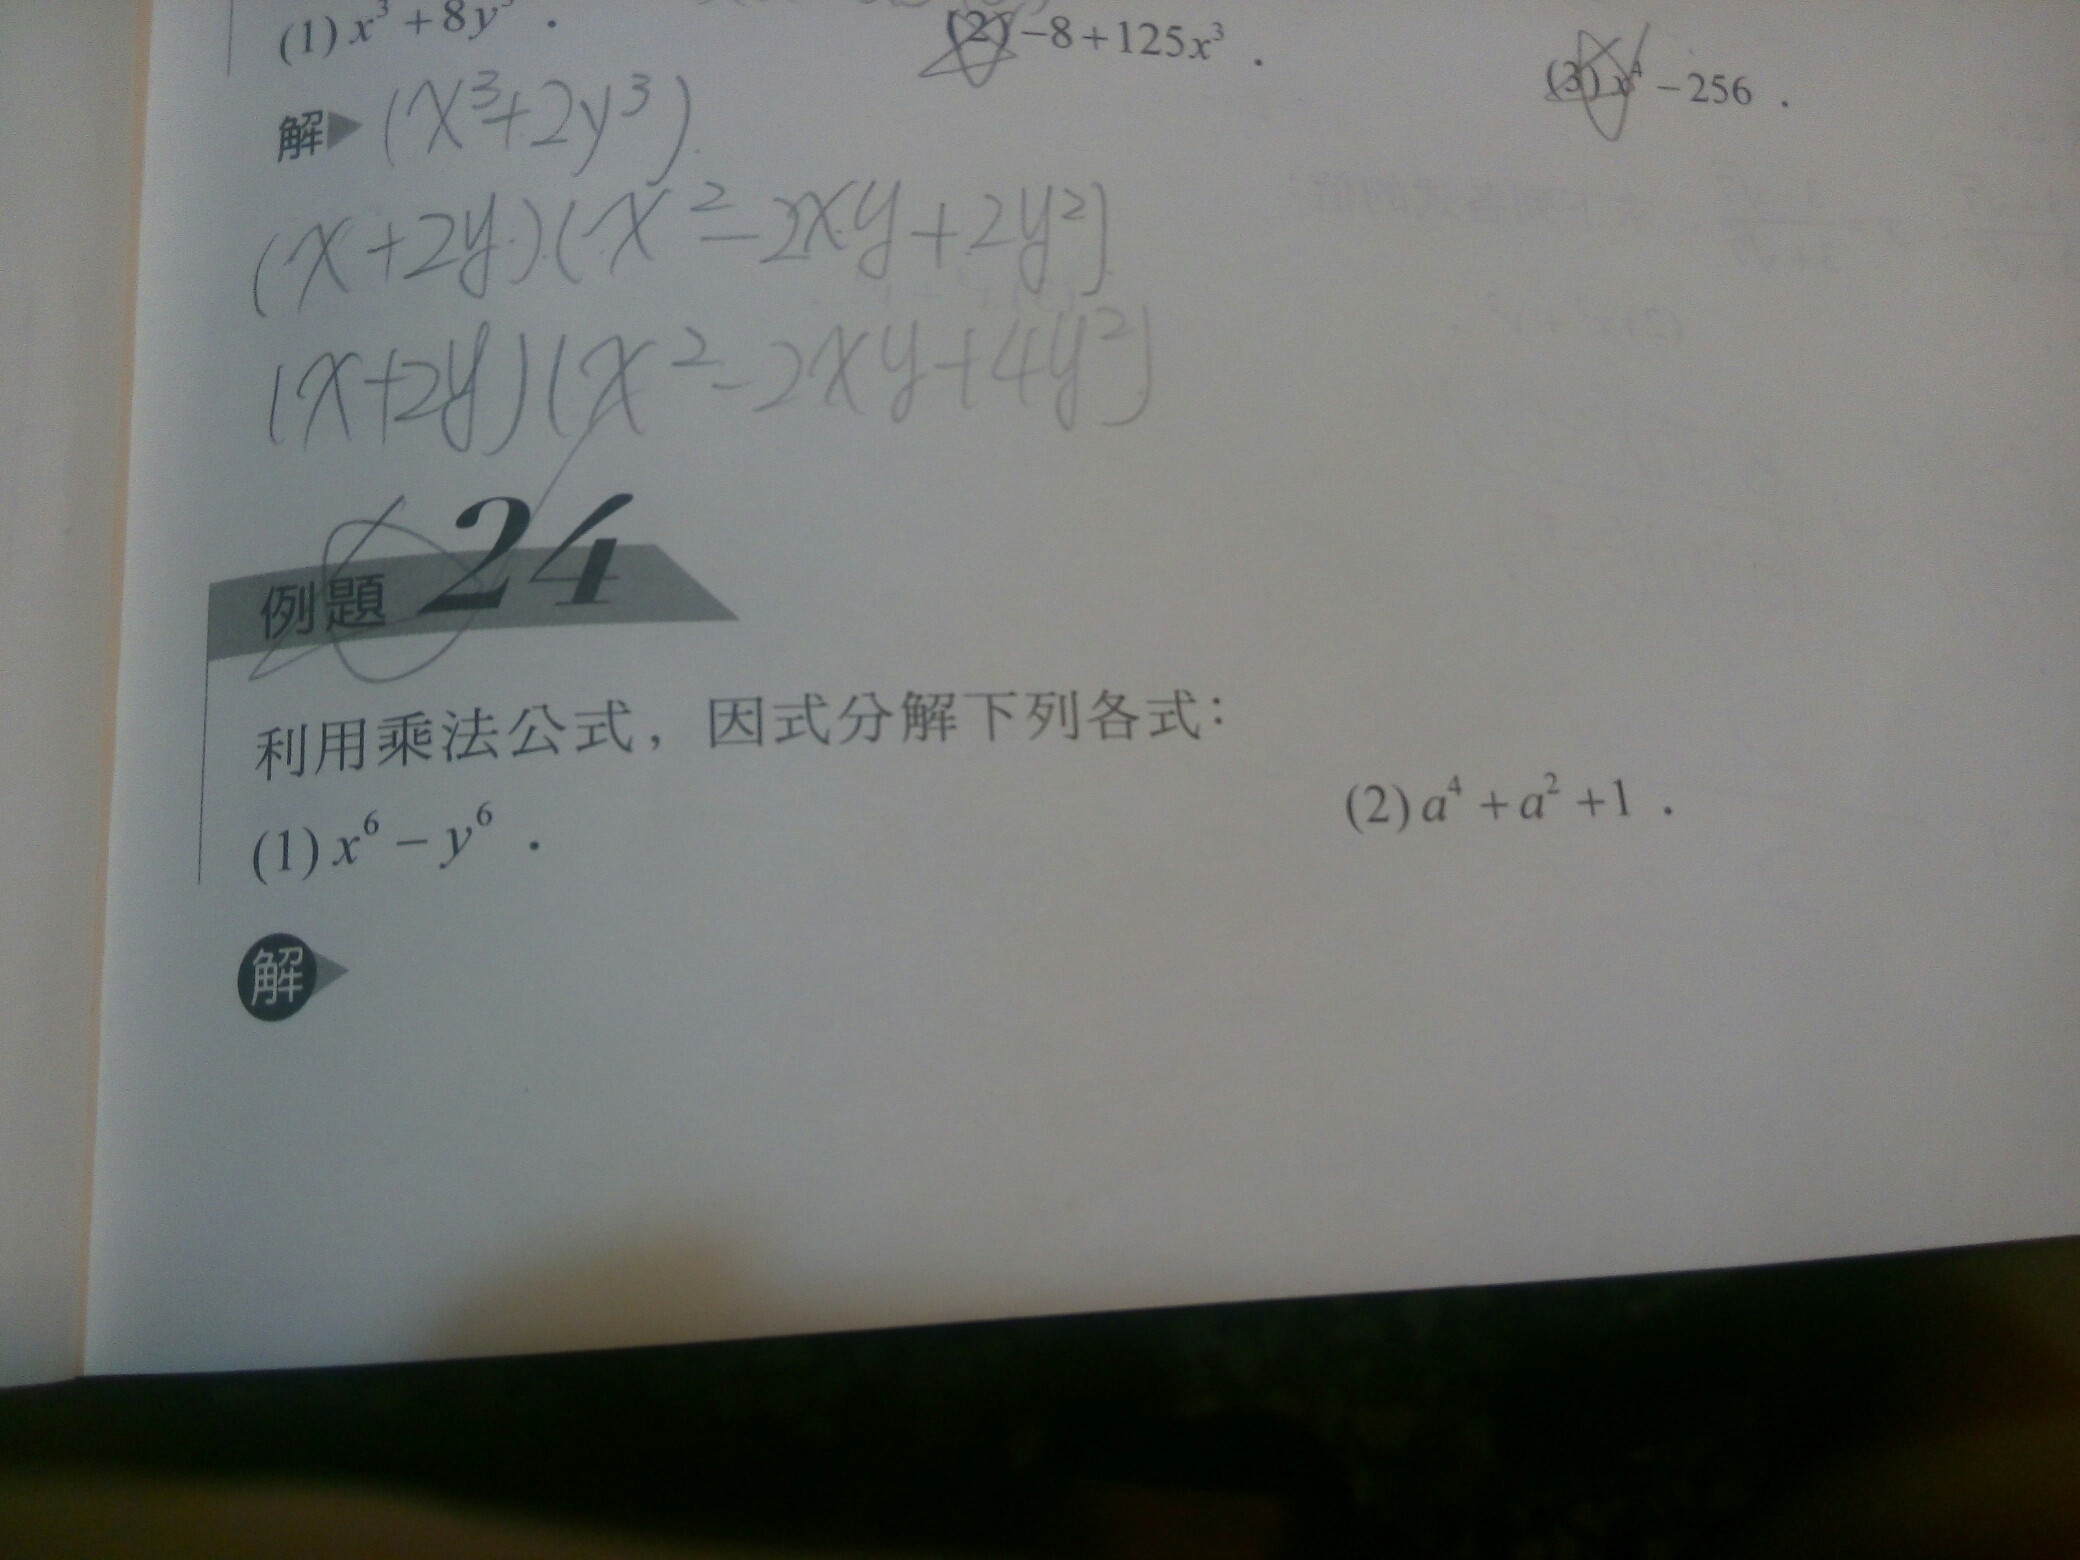 (1) x³ + 8y³ . (2) −8 + 125x³ . (3) x⁴ − 256 .
解▶ (x³+2y³)
(x+2y)(x²−2xy+2y²)
(x+2y)(x²−2xy+4y²)
例題 24
利用乘法公式，因式分解下列各式：
(1) x⁶ − y⁶ . (2) a⁴ + a² + 1 .
解